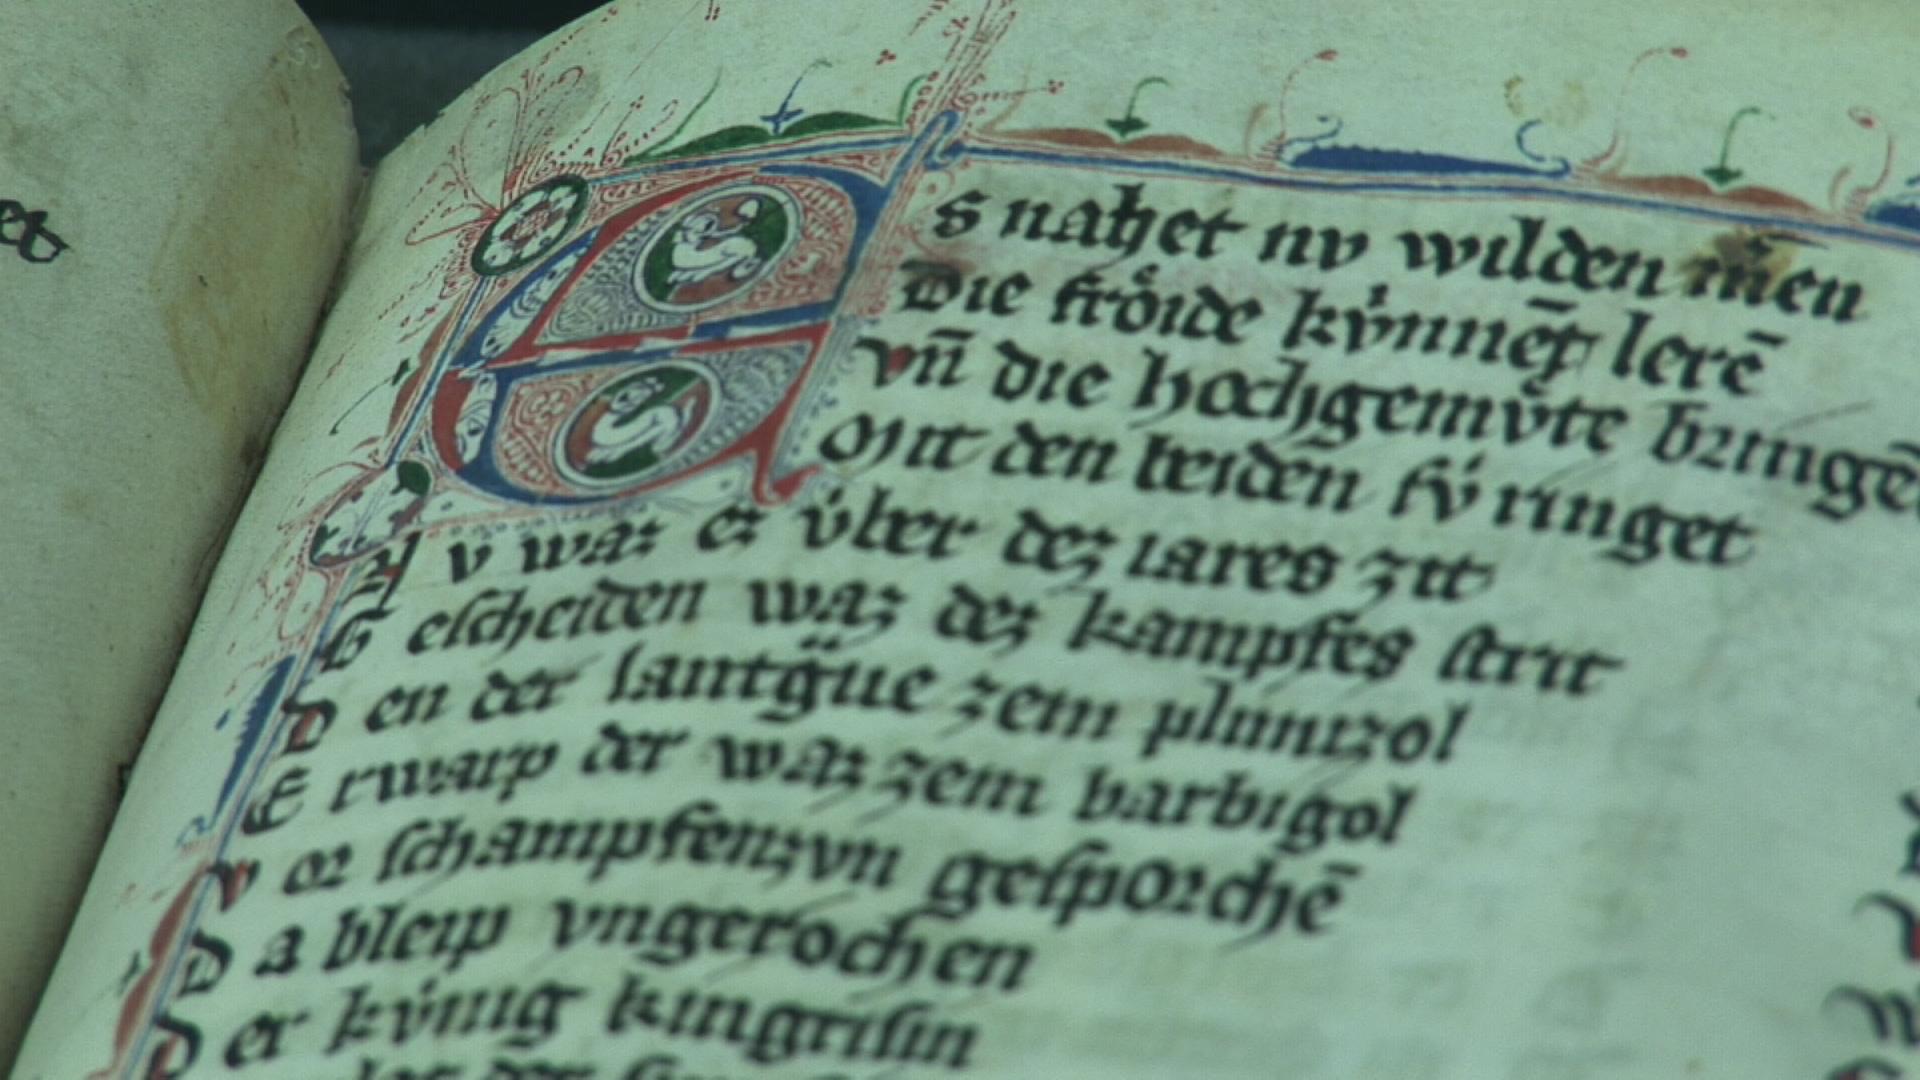 Es nahet nv wilden m̃en
Die frͦoide kv́nnēt lerē
vn̄ die hochgemv̊te bringē
Mit den beiden fv́ ringet
Nv waz ez v́ber dez iares zit
Gescheiden waz dez kampfes strit
Den der lantg̈ue zem plimizol
Erwarp der waz zem barbigol
vor schampfenzvn gesporchē
Da bleip vngerochen
Der kv́nig kingrisin